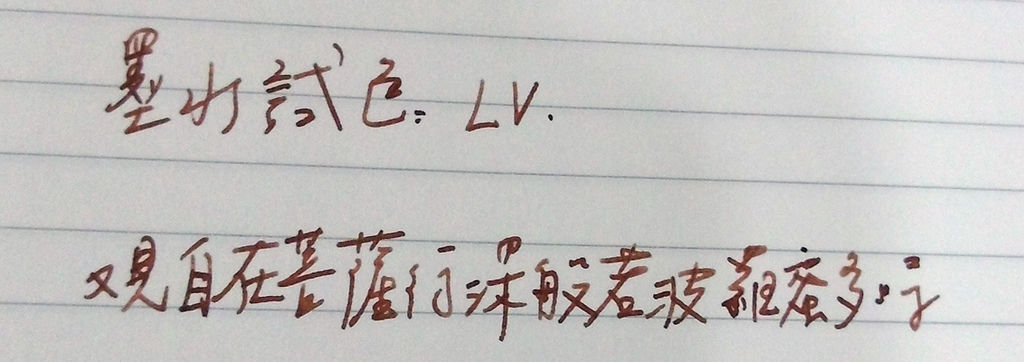 墨水試色: LV.
观自在菩薩行深般若波羅蜜多时